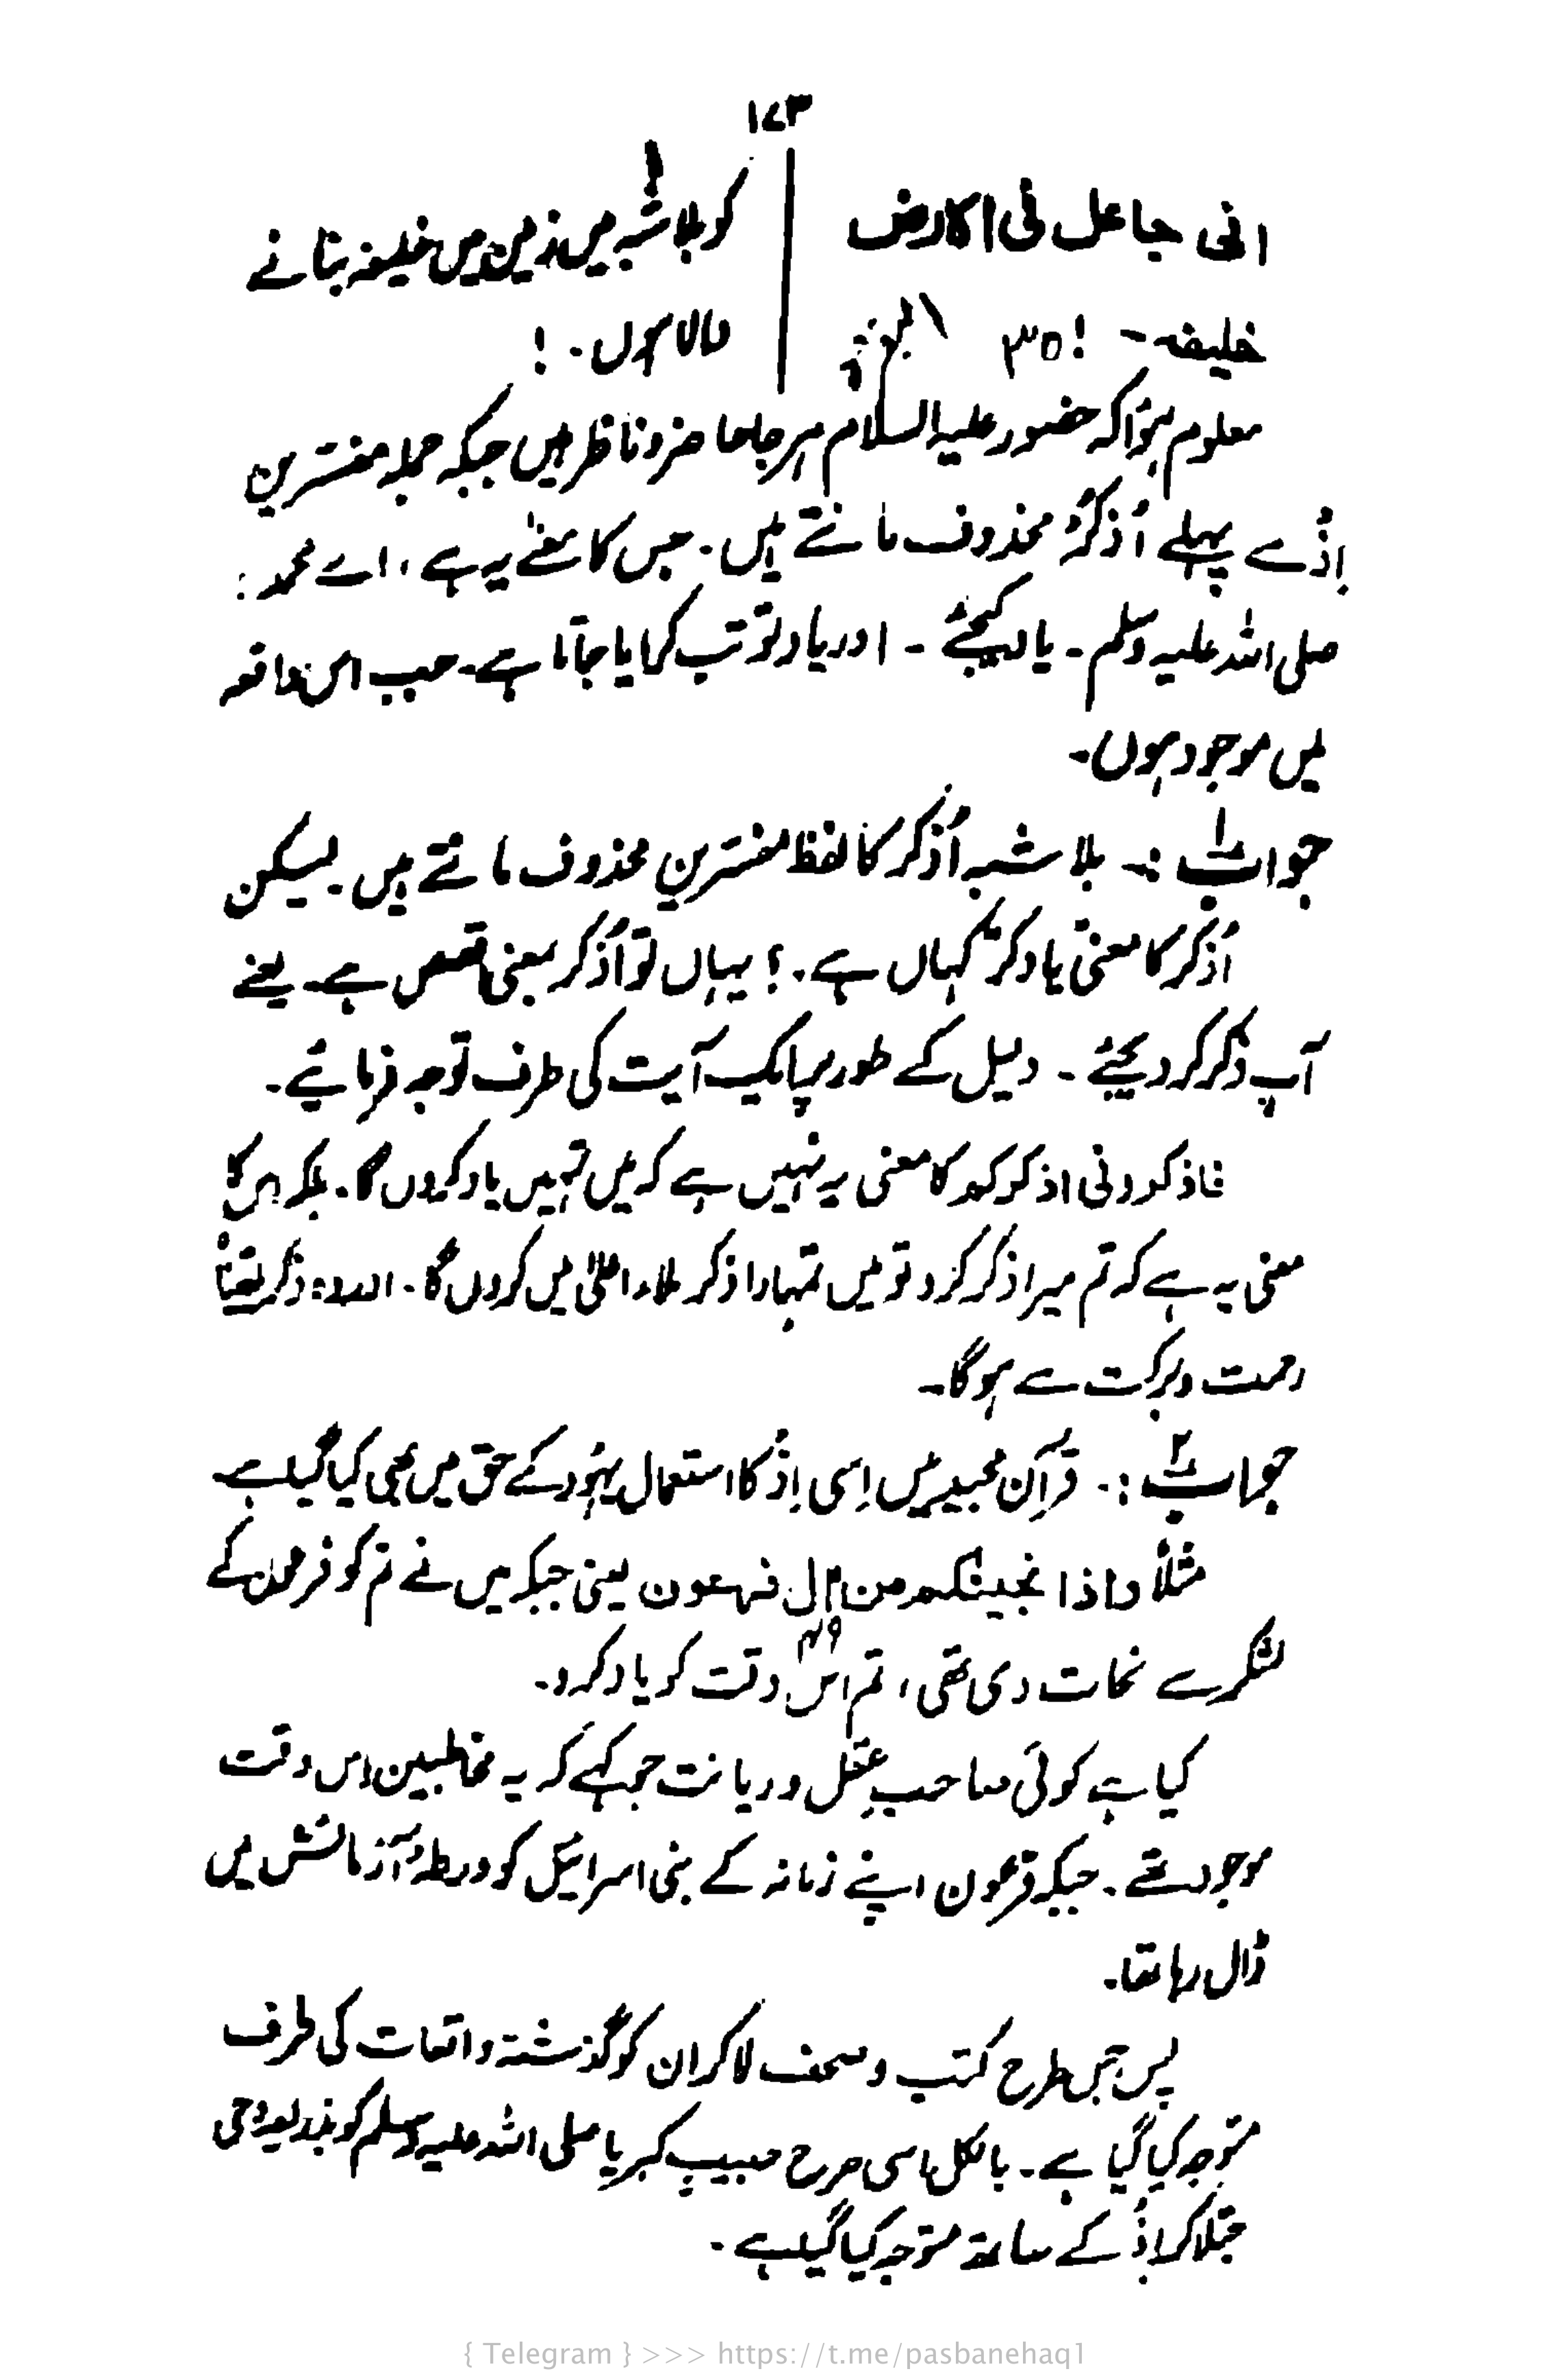 ۱۷۳
انی جاعل فی الارض
خلیفہ۔ !۳۰ البقرۃ
کو بلاشبہ میں زمین میں خلیفہ بنانے
والا ہوں۔ !
معلوم ہؤا کہ حضور علیہ السلام ہر جا حاضر و ناظر ہیں جبکہ جملہ مفسّرین
اِذْ سے پہلے اُذْکُرْ محذوف مانتے ہیں۔ جس کا معنٰے یہ ہے، اے محمد:
صلی اللہ علیہ وسلم۔ یاد کیجئے ۔ اور یاد تو تب کرایا جاتا ہے۔ جب اس واقعہ
میں موجود ہوں۔
جواب ۱ :۔ بلا شبہ اُذْکُر کا لفظ مفسّرین محذوف مانتے ہیں۔ لیکن
اُذْکُر کا معنیٰ یاد کر کہاں ہے۔؟ یہاں تو اُذْکُر بمعنی قصص ہے۔ یعنے
آپ ذکر کر دیجئے ۔ دلیل کے طور پر ایک آیت کی طرف توجہ فرمائیے۔
فاذکرونی اذکرکم کا معنی یہ نہیں ہے کہ میں تمہیں یاد کروں گا۔ بلکہ اس کا
معنی یہ ہے کہ تم میرا ذکر کرو تو میں تمہارا ذکر ملاء اعلیٰ میں کروں گا۔ اور یہ ذکر یقیناً
رحمت و برکت سے ہوگا۔
جواب ۲ :۔ قرآن مجید میں اِسی اِذْ کا استعمال یہُود کے حق میں بھی کیا گیا ہے۔
مثلاً و اذا نجینٰکم من اٰل فرعون یعنی جبکہ میں نے تم کو فرعون کے
لشکر سے نجات دی تھی، تم اس وقت کو یاد کرو۔ ۴۹
کیا ہے کوئی صاحبِ عقل و دیانت جو کہے کہ یہ مخاطبین اس وقت
موجود تھے۔ جبکہ فرعون اپنے زمانہ کے بنی اسرائیل کو ورطہء آزمائش میں
ڈال رہا تھا۔
پس جس طرح کتب و صحف لا کر ان کو گذشتہ واقعات کی طرف
متوجہ کیا گیا ہے۔ بالکل اسی طرح حبیبِ کبریا صلی اللہ علیہ وسلم کو بذریعہ وحی
جتلا کر اِذْ کے ساتھ متوجہ کیا گیا ہے۔
{ Telegram } >>> https://t.me/pasbanehaq1